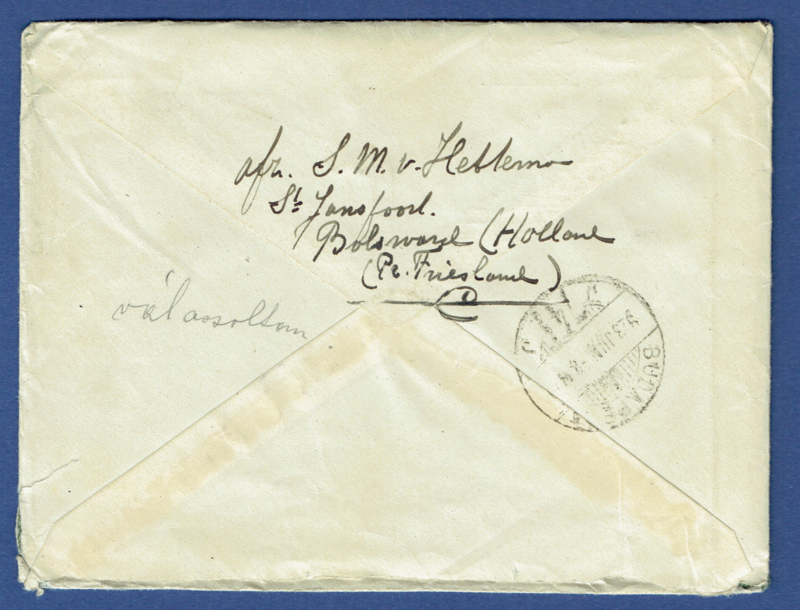 afz. S. M. v. Hettema
St. Jansfoort.
Bolsward (Holland
(Pr. Friesland)
válaszoltam
923 JUN
BUDAP